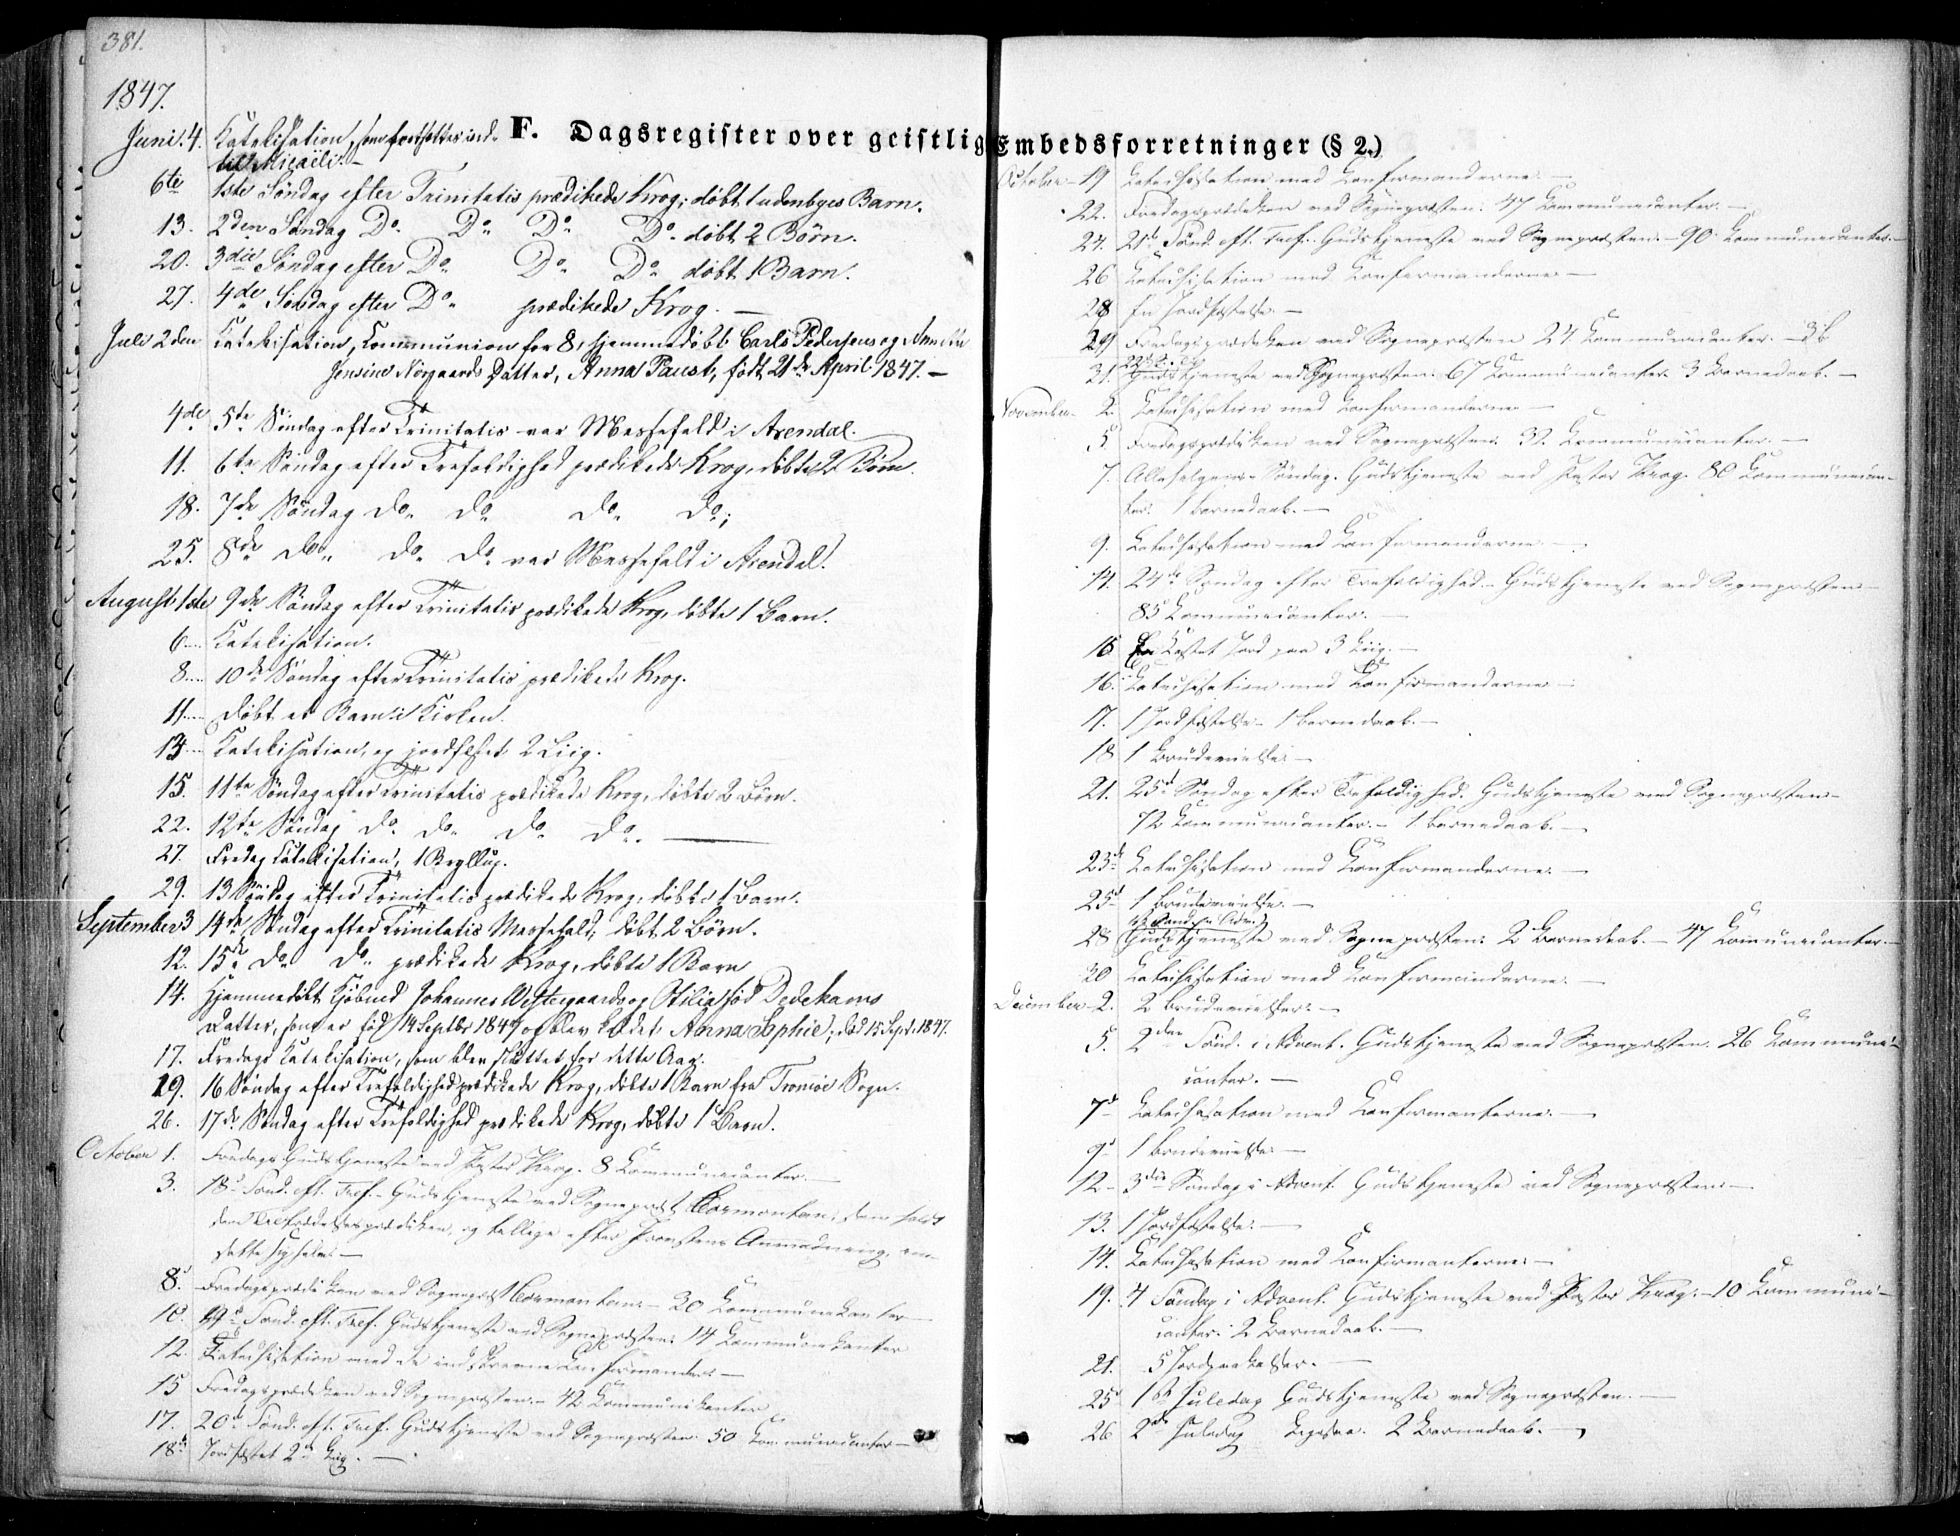 381.
1847.
F. Dagsregister over geistlig Embedsforretninger (§ 2.)
Juni 4. Katekisation, som fortsættes ind-
til Micaëli. —
6te 1ste Søndag efter Trinitatis prædikede Krog; døbt 1 udenbyes Barn.
13. 2den Søndag Do. Do. Do. Do. døbt 2 Børn.
20. 3die Søndag efter Do. Do. Do. døbt 1 Barn.
27. 4de Søndag efter Do. prædikede Krog. —
Juli 2den Katekisation, Communion for 8, hjemmedøbt Carls Pedersens og
Jensine Nørgaards Datter, Anna Paust, født 21de April 1847. —
4de 5te Søndag efter Trinitatis var Messefald i Arendal.
11. 6te Søndag efter Trefoldighed prædikede Krog, døbte 2 Børn.
18. 7de Søndag do. do. do. do.;
25. 8de do. do. do. var Messefald i Arendal.
August 1ste 9de Søndag efter Trinitatis prædikede Krog, døbte 1 Barn.
6. Katekisation.
8. 10de Søndag efter Trinitatis prædikede Krog.
11. døbt et Barn i Kirken.
13. Katekisation, og jordfæstet 2 Liig.
15. 11te Søndag efter Trinitatis prædikede Krog, døbte 2 Børn.
22. 12te Søndag do. do. do. do. —
27. Fredag Katekisation, 1 Bryllup.
29. 13 Søndag efter Trinitatis prædikede Krog, døbte 1 Barn.
September 14de Søndag efter Trinitatis Messefald, døbt 2 Børn.
12. 15de do. do. prædikede Krog, døbte 1 Barn
14. Hjemmedøbt Kjøbmd Johannes Westergaards og Otilia fød Dedekams
Datter, som er fød 14 Septbr 1847 og blev kaldet Anna Sophie; død 15 Sept. 1847.
17. Fredags Katekisation, som blev sluttet for dette Aar.
19. 16 Søndag efter Trefoldighed prædikede Krog, døbte 1 Barn fra Tromöe Sogn.
26. 17de Søndag efter Trefoldighed prædikede Krog, døbte 1 Barn.
October 1. Fredags Gudstjeneste ved Pastor Krog. 8 Communicanter. —
3. 18de Sønd. eft. Tref. Gudstjeneste ved Sognepræst den holdt
dem Tiltrædelsesprædiken, og tillige efter Provstens Anmodning
dette —
8. Fredagsprædiken ved Sognepræst 30 Communikanter
10. Sønd. eft. Tref. Gudstjeneste ved Sognepræsten. 14 Communikanter
12. Katechisation med de indskrevne Confirmander. —
15 Fredagsprædiken ved Sognepræsten. — 42 Communikanter
17. 20de Sønd. eft. Tref. Gudstjeneste ved Sognepræsten 50 Communicanter —
18de Jordfæstet 2de Lig. —
October — 19 Katechisation med Confirmanderne. —
22. Fredagsprædiken ved Sognepræsten. 47 Communicanter. —
24. 21de Sønd. eft. Tref. Gudstjeneste ved Sognepræsten. — 90 Communicanter. —
26 Katechisation med Confirmanderne —
28 En Jordfæstelse. —
29 Fredagsprædiken ved Sognepræsten 24 Communicanter. —
31. Gudstjeneste ved Sognepræsten. 67 Communicanter 3 Barnedaab. —
November. 2. Katechisation med Confirmanderne —
5. Fredagsprædiken ved Sognepræsten. 32 Communicanter. —
7. Allehelgens-Søndag. Gudstjeneste ved Pastor Krog. 80 Communican-
ter. 1 Barnedaab. —
9. Katechisation med Confirmanderne. —
14. 24de Søndag efter Trefoldighed. Gudstjeneste ved Sognepræsten —
85 Communicanter. —
15 Kastet Jord paa 3 Liig. —
16. Katechisation med Confirmanderne —
17. 1 Jordfæstelse. 1 Barnedaab. —
18 1 Brudevielse. —
21. 25de Søndag efter Trefoldighed. Gudstjeneste ved Sognepræsten —
72 Communicanter. — 1 Barnedaab. —
23de Katechisation med Confirmanderne. —
25de 1 Brudevielse. —
28 Gudstjeneste ved Sognepræsten. 2 Barnedaab. — 47 Communicanter. —
30 Katechisation med Confirmanderne. —
December 2. 2 Brudevielser. —
5. 2den Sønd. i Advent. Gudstjeneste ved Sognepræsten. 26 Communi-
canter. —
7de Katechisation med Confirmanterne. —
9de 1 Brudevielse —
12 — 3die Søndag i Advent. Gudstjeneste ved Sognepræsten. —
13. 1 Jordfæstelse. —
14. Katechisation med Confirmanterne. —
19. 4 Søndag i Advent. Gudstjeneste ved Pastor Krog. — 10 Communi-
canter. 2 Barnedaab. —
21. 5 —
25de 1ste Juledag Gudstjeneste ved Sognepræsten. —
26 2de Juledag Ligesaa. 2 Barnedaab. —